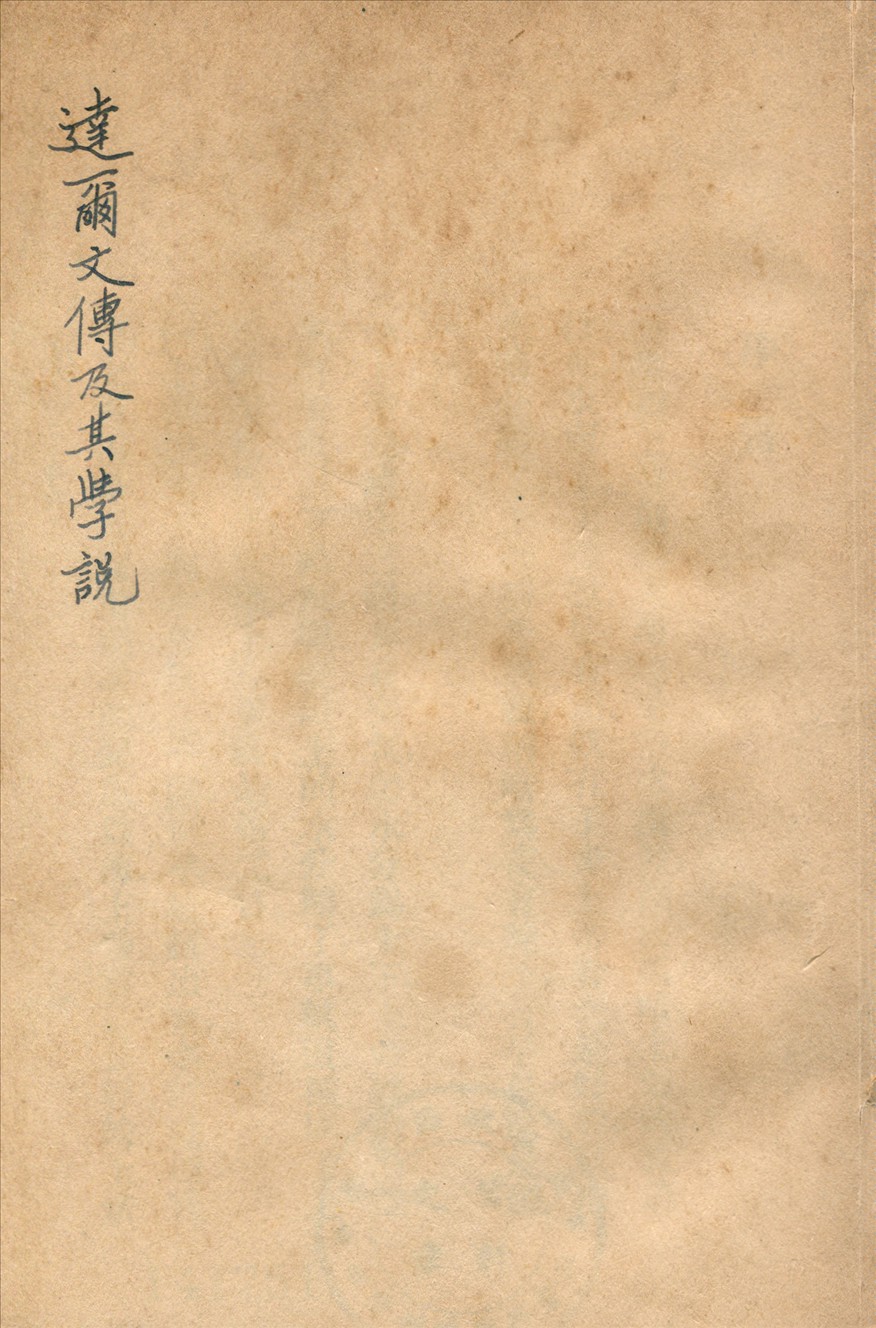 達爾文傳及其學説